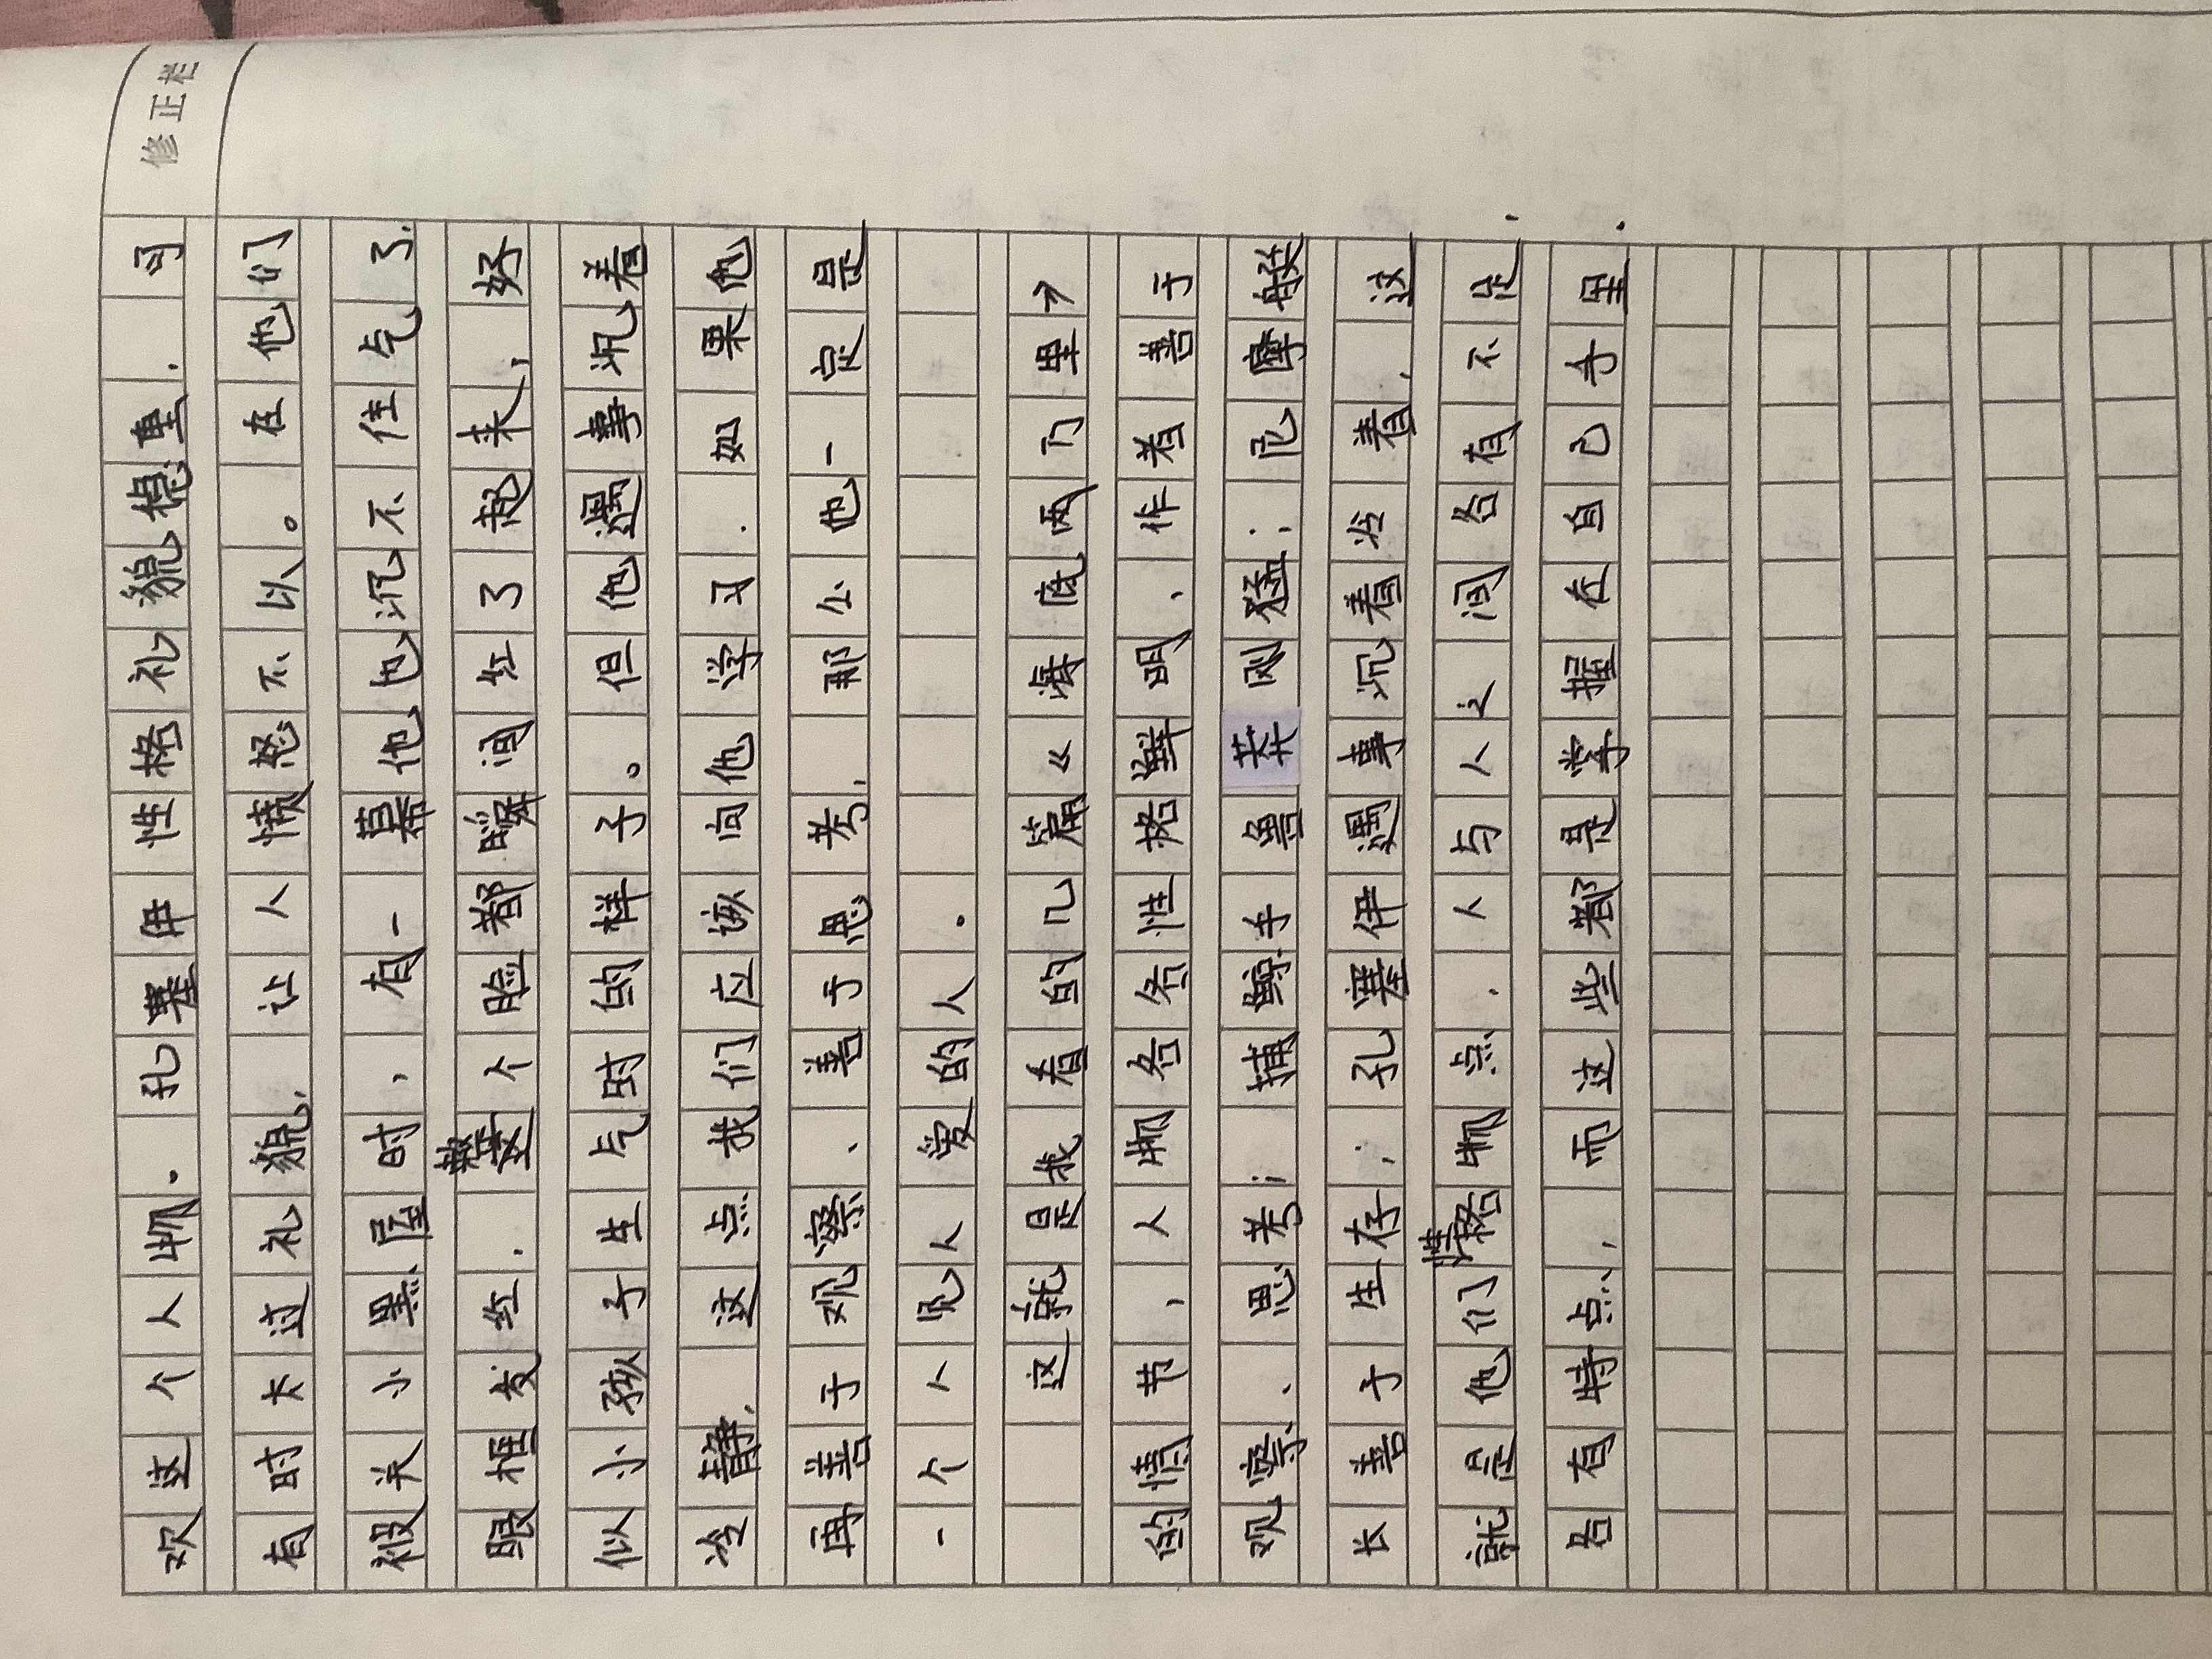 修正栏
欢这个人物.孔塞伊性格礼貌稳重.可
有时太过礼貌,让人愤怒不以。在他们
被关小黑屋时,有一幕他也沉不住气了.
眼框发红.整个脸都瞬间红了起来,好
似小孩子生气时的样子。但他遇事沉着
冷静,这点我们应该向他学习.如果他
再善于观察、善于思考,那么他一定是
一个人见人爱的人.
这就是我看的几篇《海底两万里》
的情节,人物各各性格鲜明、作者善于
观察、思考;捕鲸手鲁莽刚猛;尼摩般
长善于生存;孔塞伊遇事沉着冷着,这
就是他们情格物点.人与人之间各有不足,
各有特点,而这些都是掌握在自己手里.